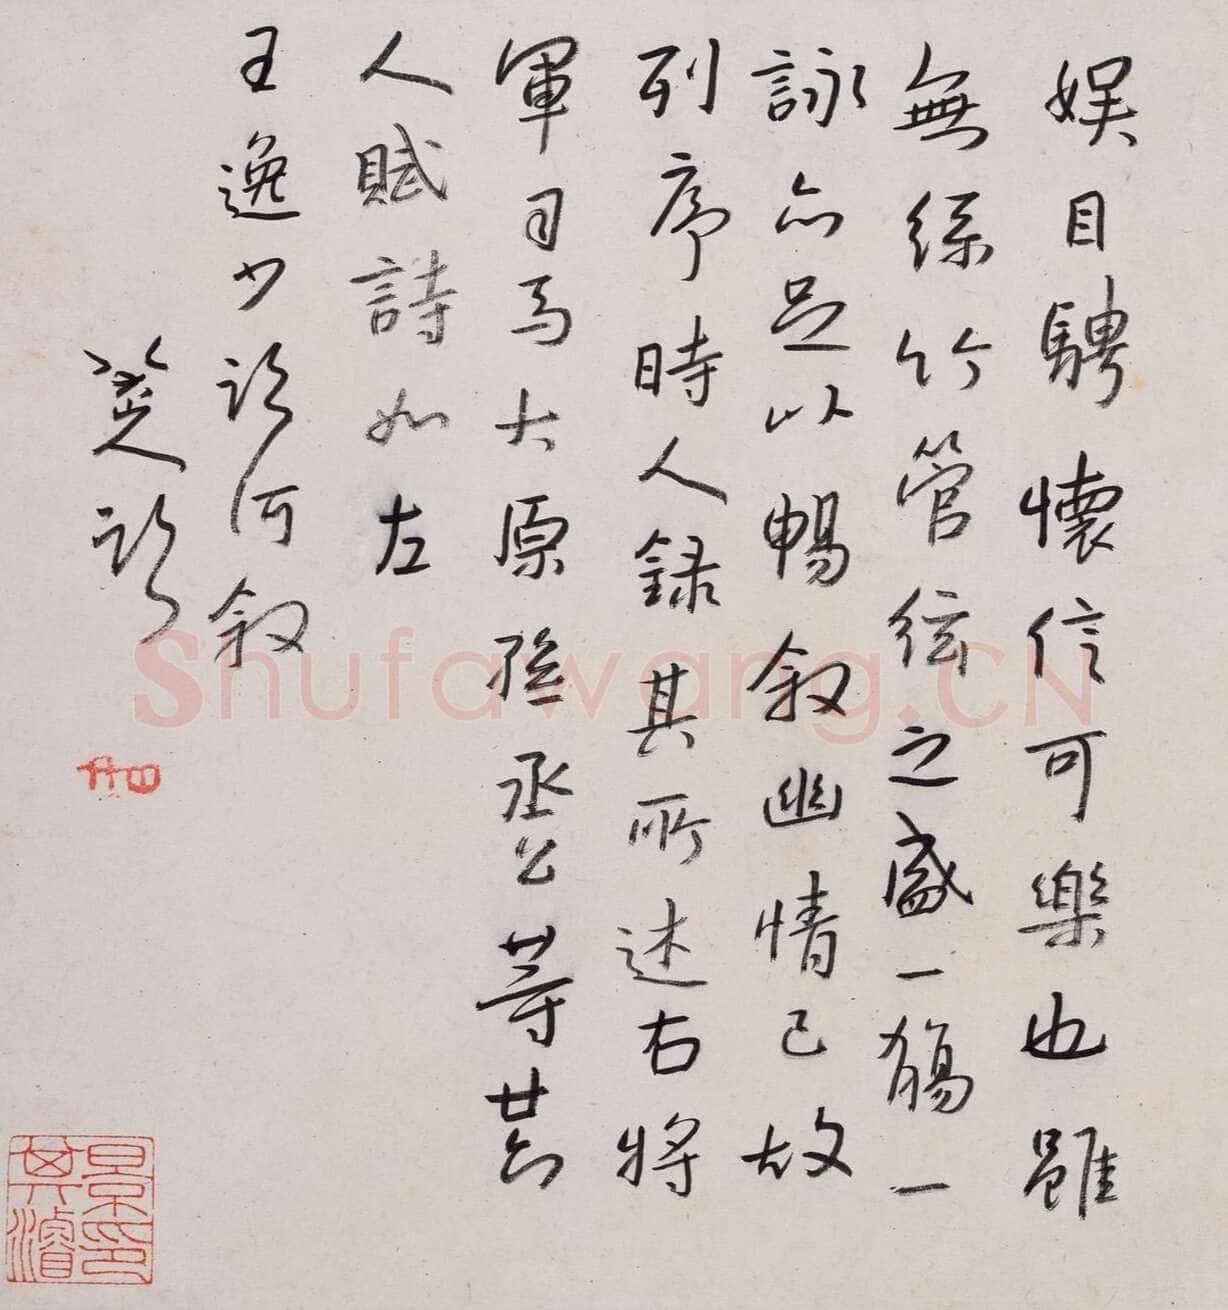 娱目騁懷信可樂也雖
無絲竹管絃之盛一觴一
詠亦足以暢叙幽情已故
列序時人録其所述右將
軍司馬大原孫丞公等廿六
人賦詩如左
王逸少臨河叙
臨
景其濬印
shufawang.CN